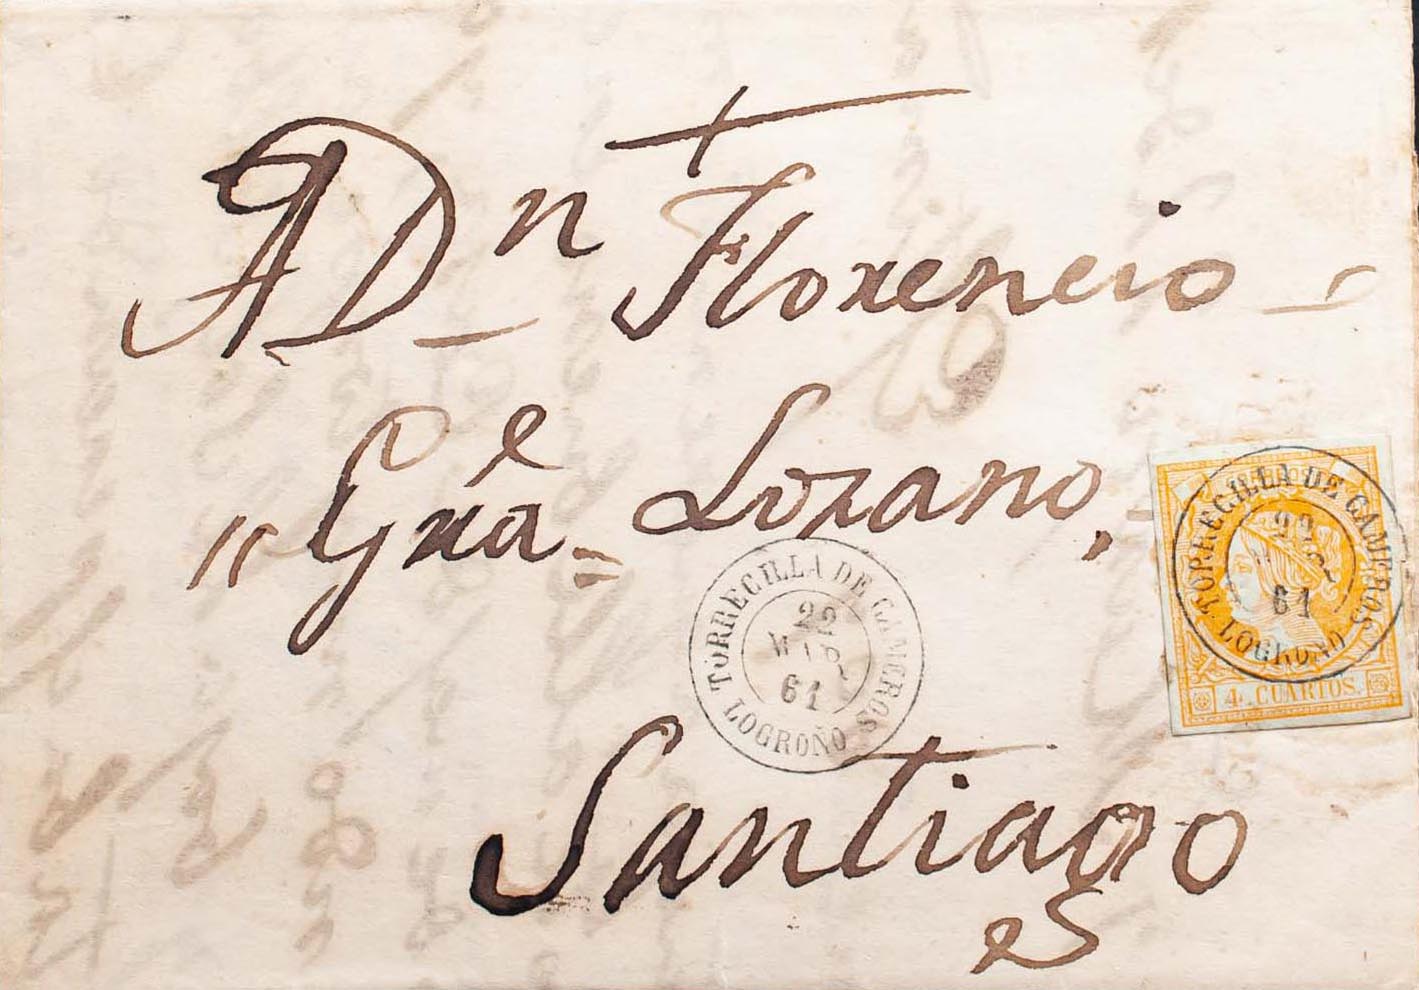 A Dn Florencio
" Gra Lozano,
Santiago
TORRECILLA DE CAMEROS
22
MAR
61
LOGROÑO
TORRECILLA DE CAMEROS
22
61
LOGROÑO
4 CUARTOS